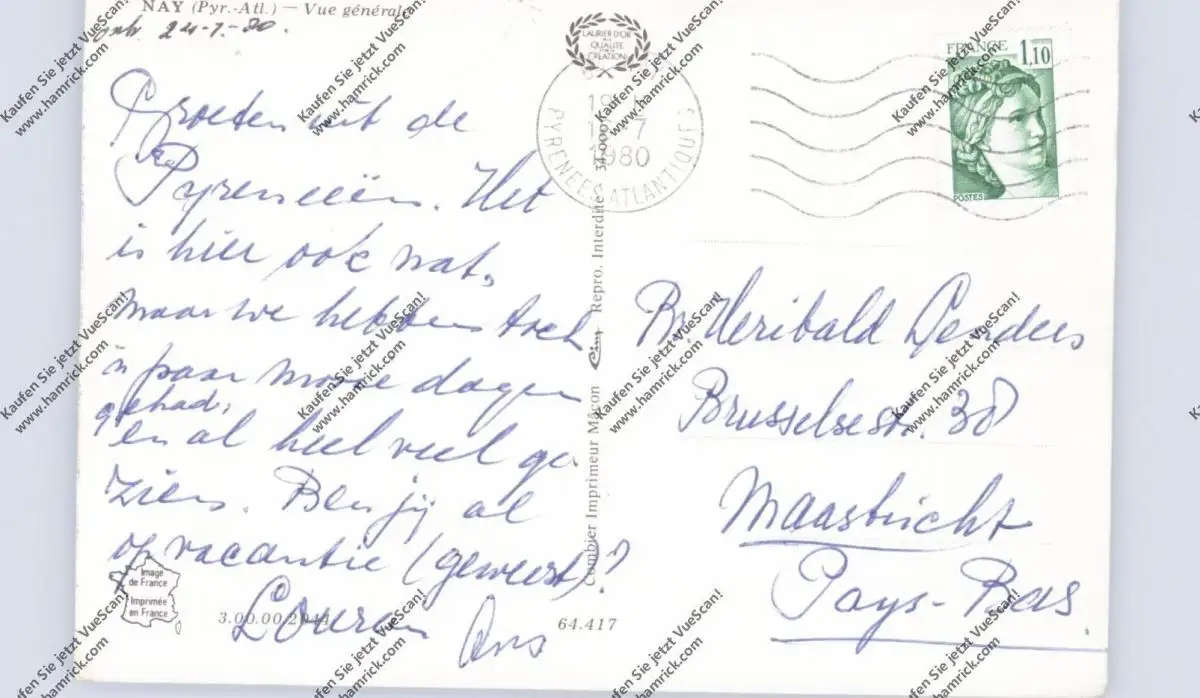 NAY (Pyr.-Atl.) — Vue générale
24-7-80.
Groeten uit de
Pyreneeën. Het
is hier ook nat,
maar we hebben toch
'n paar mooie dagen
gehad,
en al heel veel ge-
zien. Ben jij al
op vacantie (geweest)?
Ans
LAURIER D'OR
DE LA
QUALITÉ
CRÉATION
19
7
1980
PYRENEES ATLANTIQUES
FRANCE 1,10
POSTES
Br. Heribald
Brusselsestr. 38
Maastricht
Pays-Bas
Combier Imprimeur Mâcon Cim Repro. Interdite
Image
de France
Imprimée
en France
3.00.00.2011
64.417
Kaufen Sie jetzt VueScan!
www.hamrick.com